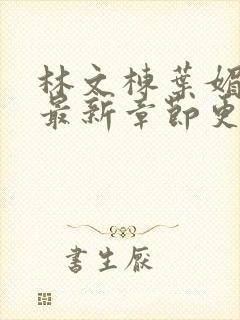 林文棟葉媚
最新章節更
書生厭